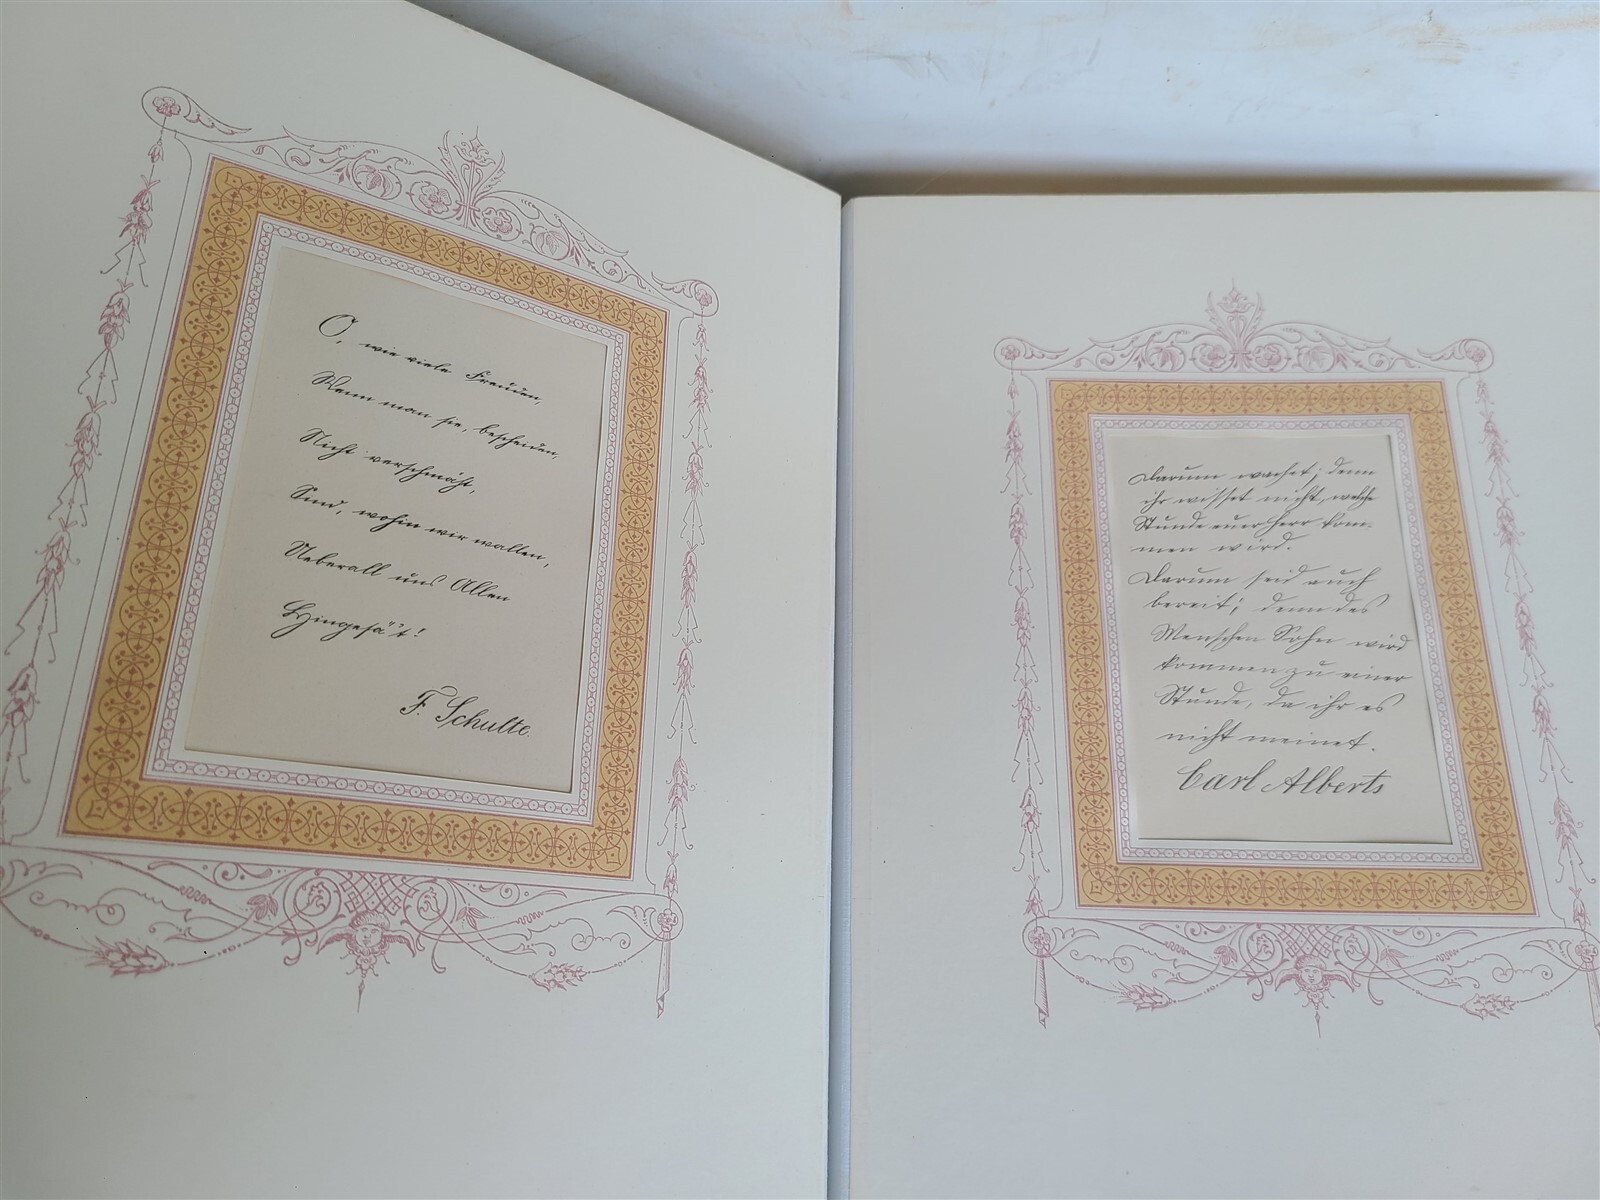 O, wie viele Freuden,
Wenn man sie, bescheiden,
Nicht verschmäht,
Sind, wohin wir wallen,
Ueberall uns Allen
Hingesä't!
F. Schulte
Darum wachet; denn
ihr wisset nicht, welche
Stunde euer Herr kom-
men wird.
Darum seid auch
bereit; denn des
Menschen Sohn wird
kommen zu einer
Stunde, da ihr es
nicht meinet.
Carl Alberts